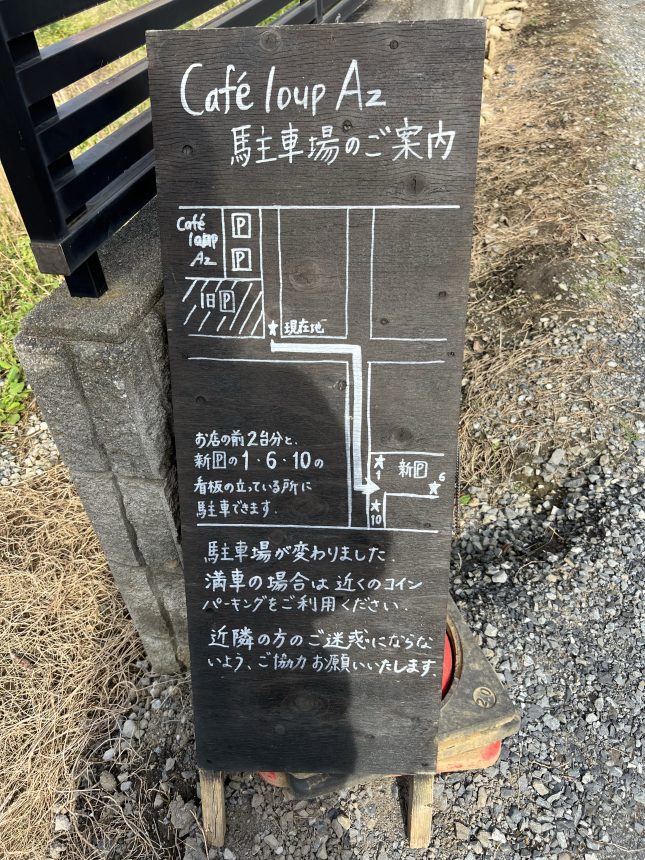 Café loup Az
駐車場のご案内
Café
loup
Az
P
P
旧P
★現在地
お店の前2台分と、
新Pの1・6・10の
看板の立っている所に
駐車できます.
★
1
新P
★
6
★
10
駐車場が変わりました.
満車の場合は近くのコイン
パーキングをご利用ください.
近隣の方のご迷惑にならな
いよう、ご協力お願いいたします.